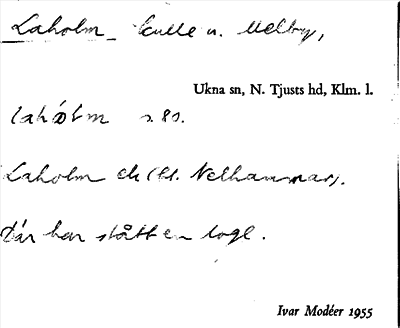 Laholm kulle u. Melby,
Ukna sn, N. Tjusts hd, Klm. l.
lahòlm s. 80.
Laholm ek (kl. Nelhammar).
Där har stått en logl.
Ivar Modéer 1955